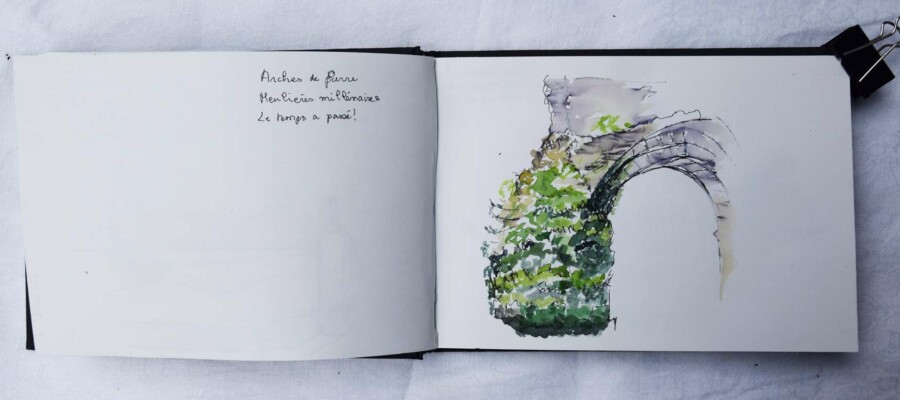 Arches de pierre
Meulières millénaires
Le temps a passé!